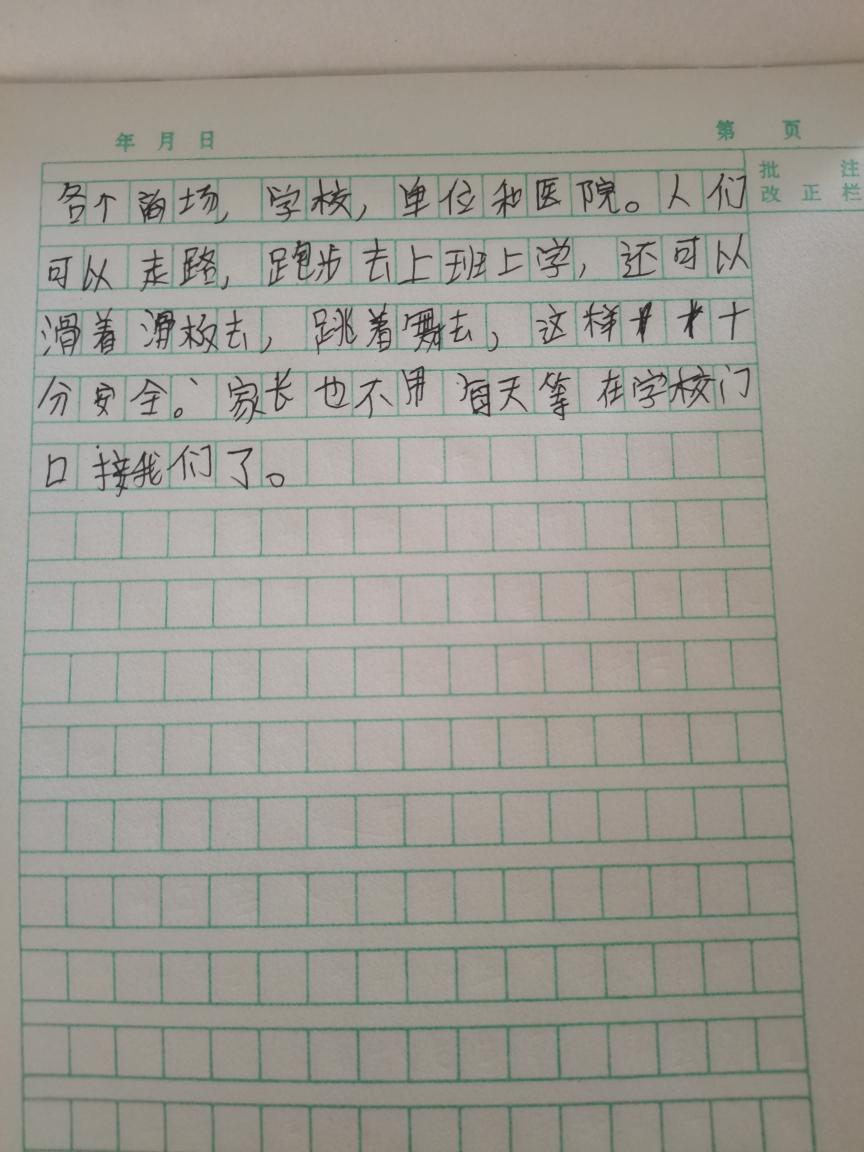 年 月 日 第 页
批 注
改 正 栏
各个商场，学校，单位和医院。人们
可以走路，跑步去上班上学，还可以
滑着滑板去，跳着舞去，这样十
分安全。家长也不用每天等在学校门
口接我们了。